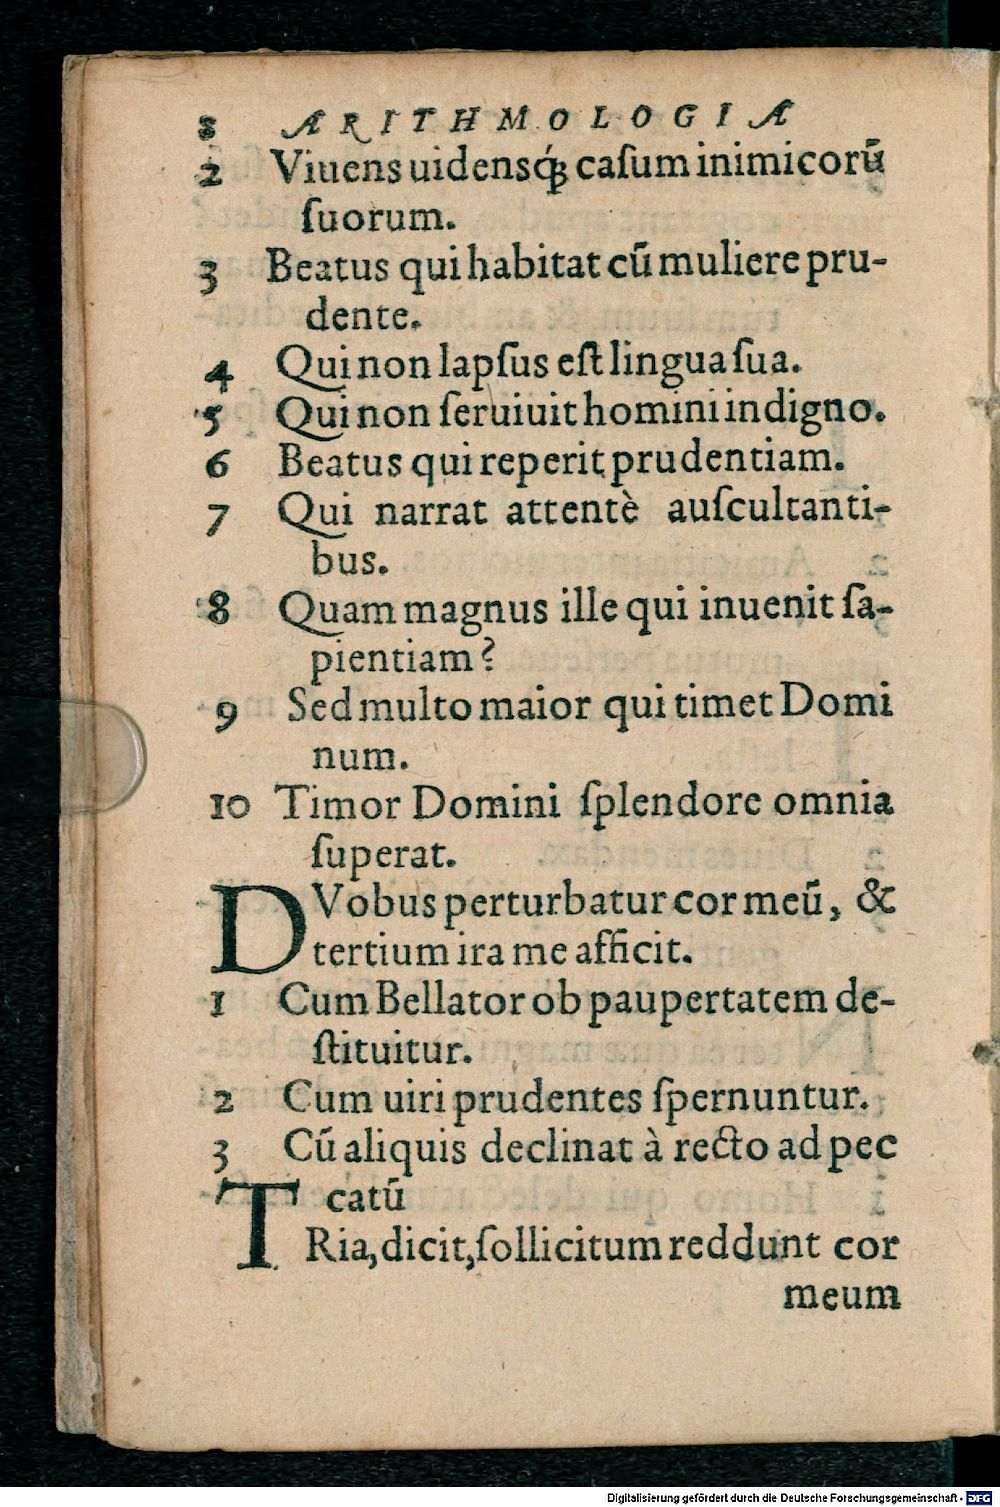 8 ÆRITHMOLOGIÆ
2 Viuens uidensq́ꝫ caſum inimicorū
ſuorum.
3 Beatus qui habitat cū muliere pru-
dente.
4 Qui non lapſus eſt lingua ſua.
5 Qui non ſeruiuit homini indigno.
6 Beatus qui reperit prudentiam.
7 Qui narrat attentè auſcultanti-
bus.
8 Quam magnus ille qui inuenit ſa-
pientiam?
9 Sed multo maior qui timet Domi
num.
10 Timor Domini ſplendore omnia
ſuperat.
DVobus perturbatur cor meū, &
tertium ira me afficit.
1 Cum Bellator ob paupertatem de-
ſtituitur.
2 Cum uiri prudentes ſpernuntur.
3 Cū aliquis declinat à recto ad pec
catū
TRia, dicit, ſollicitum reddunt cor
meum
Digitalisierung gefördert durch die Deutsche Forschungsgemeinschaft - DFG